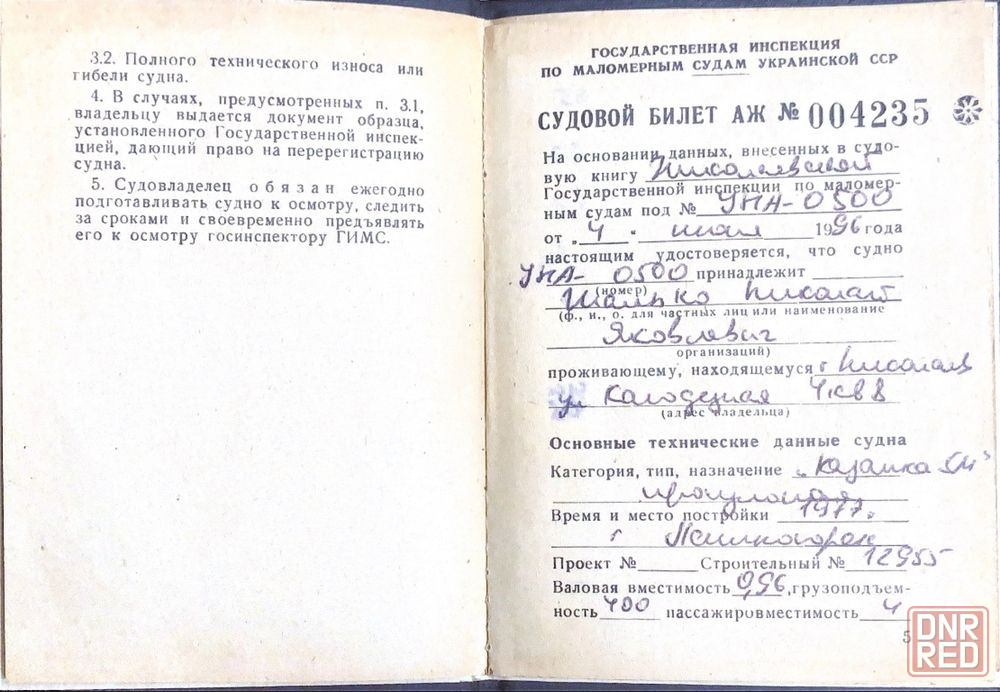 3.2. Полного технического износа или
гибели судна.
4. В случаях, предусмотренных п. 3.1,
владельцу выдается документ образца,
установленного Государственной инспек-
цией, дающий право на перерегистрацию
судна.
5. Судовладелец обязан ежегодно
подготавливать судно к осмотру, следить
за сроками и своевременно предъявлять
его к осмотру госинспектору ГИМС.
ГОСУДАРСТВЕННАЯ ИНСПЕКЦИЯ
ПО МАЛОМЕРНЫМ СУДАМ УКРАИНСКОЙ ССР
СУДОВОЙ БИЛЕТ АЖ № 004235
На основании данных, внесенных в судо-
вую книгу Николаевской
Государственной инспекции по маломер-
ным судам под № УНА-0500
от „4" 1996 года
настоящим удостоверяется, что судно
УНА- 0500 принадлежит
(номер)
Николай
(ф., и., о. для частных лиц или наименование
Яковлевич
организаций)
проживающему, находящемуся г Николаев
ул Колодезная 4 кв 8
(адрес владельца)
Основные технические данные судна
Категория, тип, назначение „Казанка 5М"
прогулочная
Время и место постройки 1977г
г
Проект № Строительный № 12955
Валовая вместимость 0,96, грузоподъем-
ность 400 пассажировместимость 4
5
DNR
RED